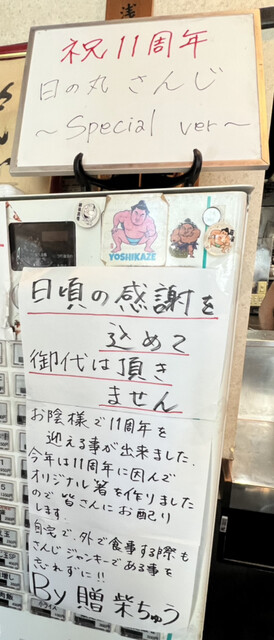 浅
祝11周年
日の丸 さんじ
～Special ver～
YOSHIKAZE
日頃の感謝を
込めて
御代は頂き
ません
お陰様で11周年を
迎える事が出来ました.
今年は11周年に因んで
オリジナル箸を作りました
ので皆さんにお配り
します.
自宅で、外で食事する際も
さんじジャンキーである事を
忘れずに!!
By 贈 柴ちゅう